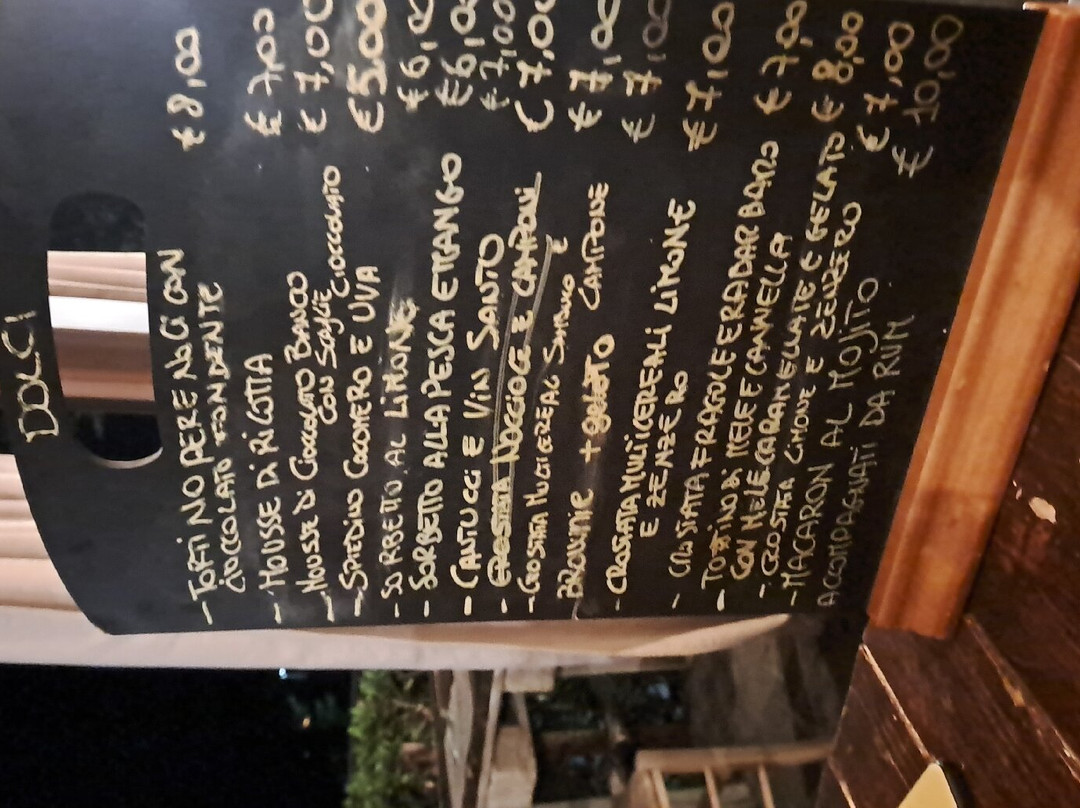 DOLCI
- TORTINO PERE NOCI CON € 8,00
CIOCCOLATO FONDENTE
- MOUSSE DI RICOTTA € 7,00
- MOUSSE DI CIOCCOLATO BIANCO € 7,00
CON SCAGLIE CIOCCOLATO
- SPIEDINO COCOMERO E UVA € 5,00
- SORBETTO AL LIMONE € 6,00
- SORBETTO ALLA PESCA E MANGO € 6,00
- CANTUCCI E VIN SANTO € 7,00
- CROSTATA NOCCIOLE E LAMPONI € 7,00
- CROSTATA MULTICEREALI E
BROWNIE + gelato LAMPONE € 7,00
- CROSTATA MULTICEREALI LIMONE € 7,00
E ZENZERO
- CROSTATA FRAGOLE E RABARBARO € 7,00
- TORTINO DI MELE E CANNELLA
CON MELE CARAMELLATE E GELATO € 8,00
- CROSTATA LIMONE E ZENZERO € 7,00
- MACARON AL MOJITO € 10,00
ACCOMPAGNATI DA RUM